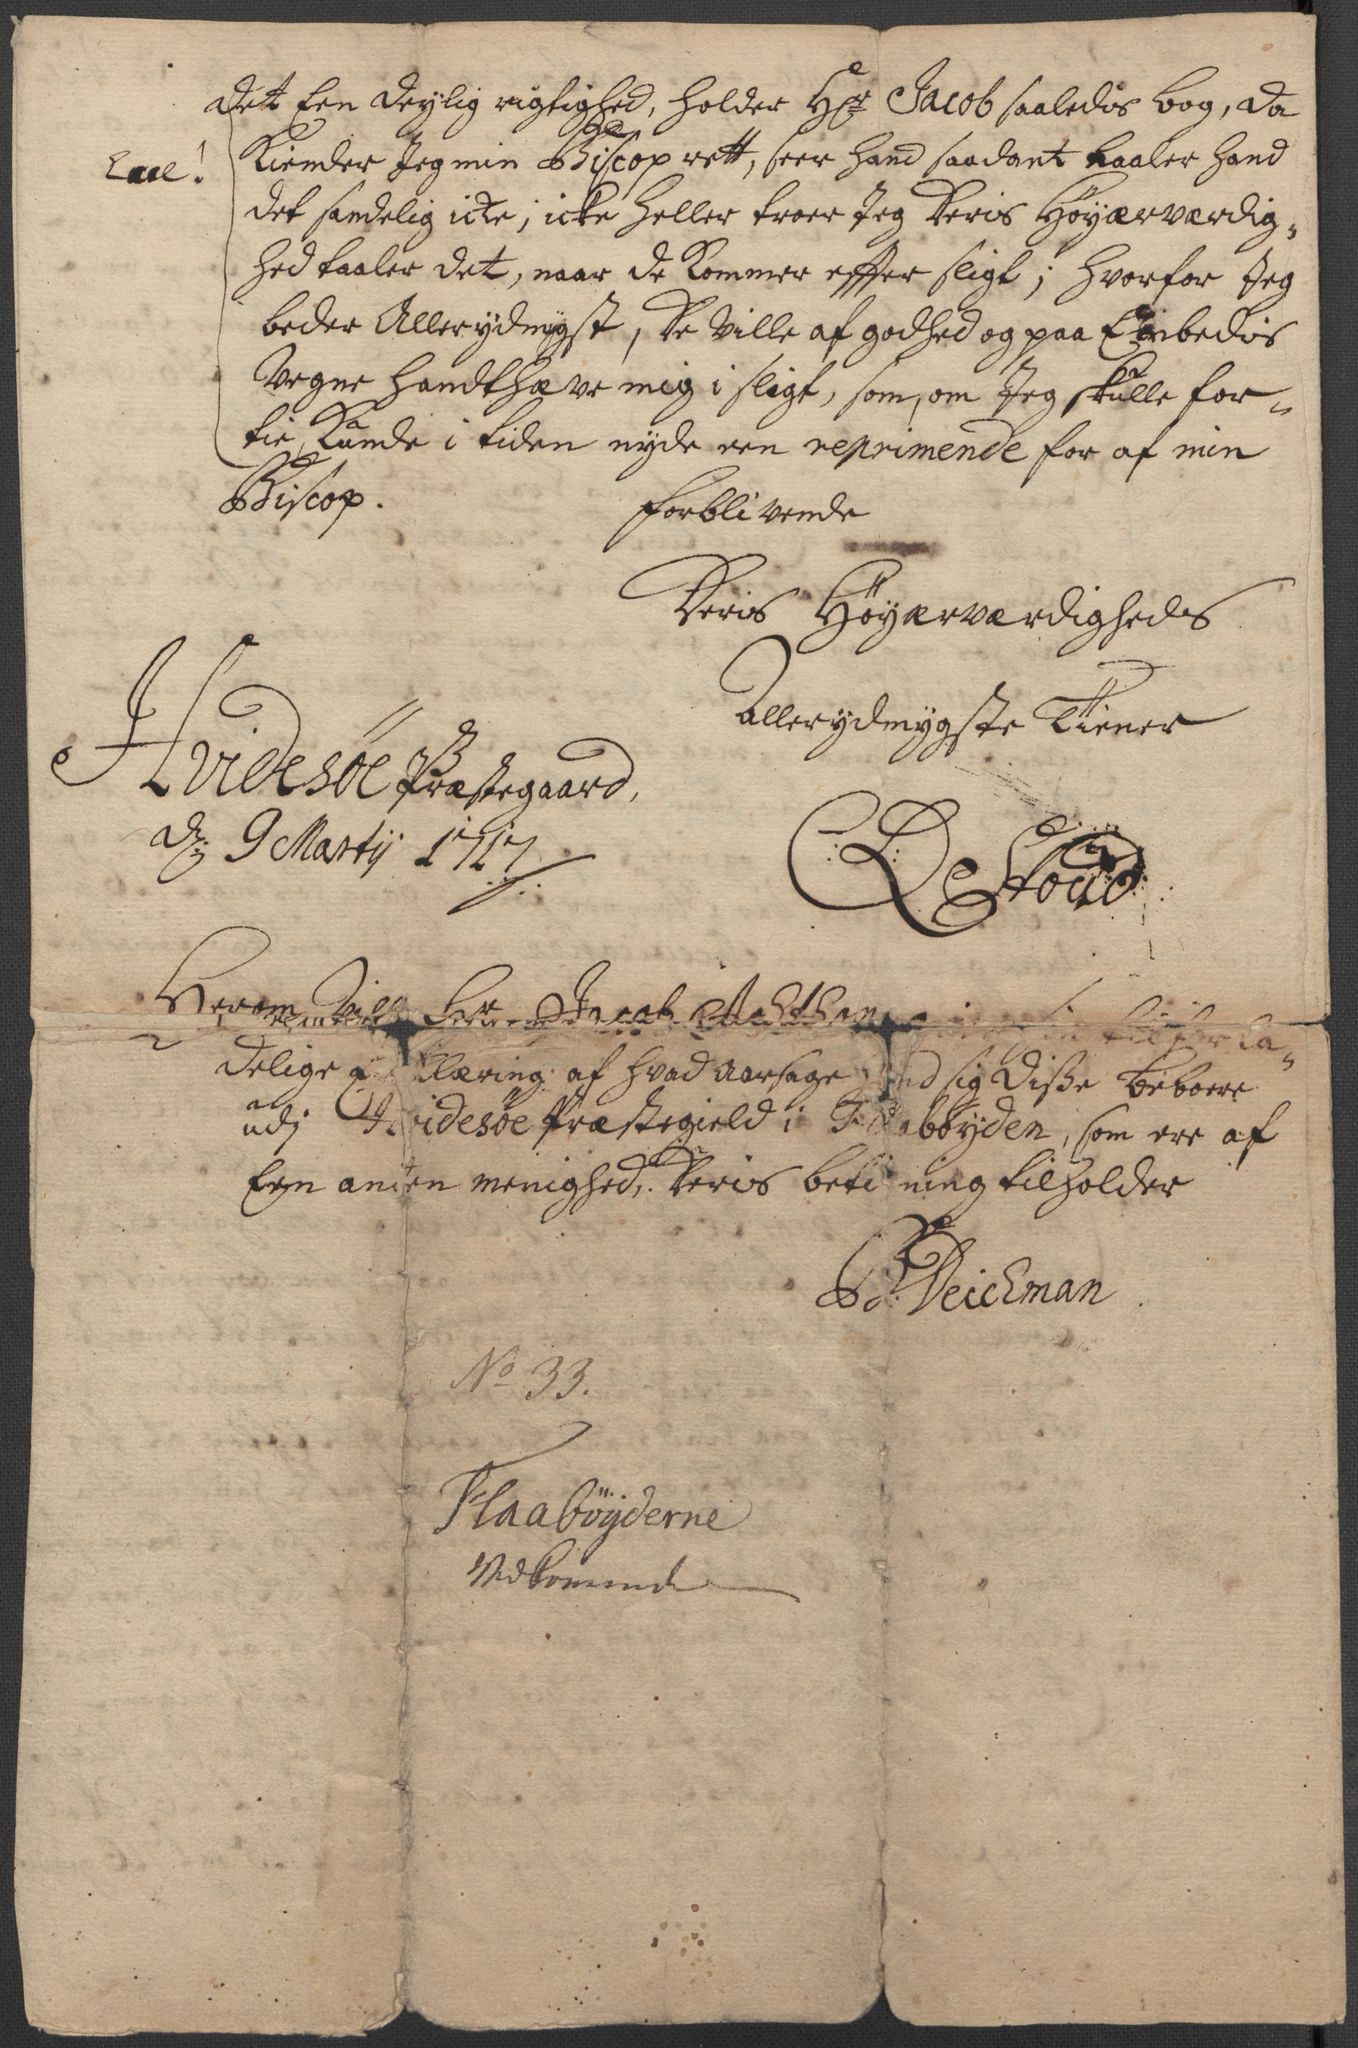 det Een deylig rigtighed, holder Hr Jacob saaledis bog, da
Kiender Jeg min Biscop rett, seer hand saadant taaler hand
det sandelig icke; icke heller troer Jeg Deris Höyærværdig-
hed taaler det, naar de kommer effter sligt; hvorfor Jeg
beder Allerydmygst, De ville af godhed og paa Embedis
vegne handthæve mig i sligt, som, om Jeg skulle for-
tie, Kunde i tiden nyde een reprimende for af min
Biscop.
forblivende
Deris Höyærværdigheds
allerydmygste Tiener
Hvidesöe Præstegaard,
d. 9 Martij 1717
Herom vill Herr Jacob
delige Erklæring af hvad aarsage sig disse beboere
udj Hvidesöe Præstegield i Flaabøyden, som ere af
Een anden menighed, Deris betiening tilholder
B: Deichman
No 33.
Flaabøyderne
Vedkommende